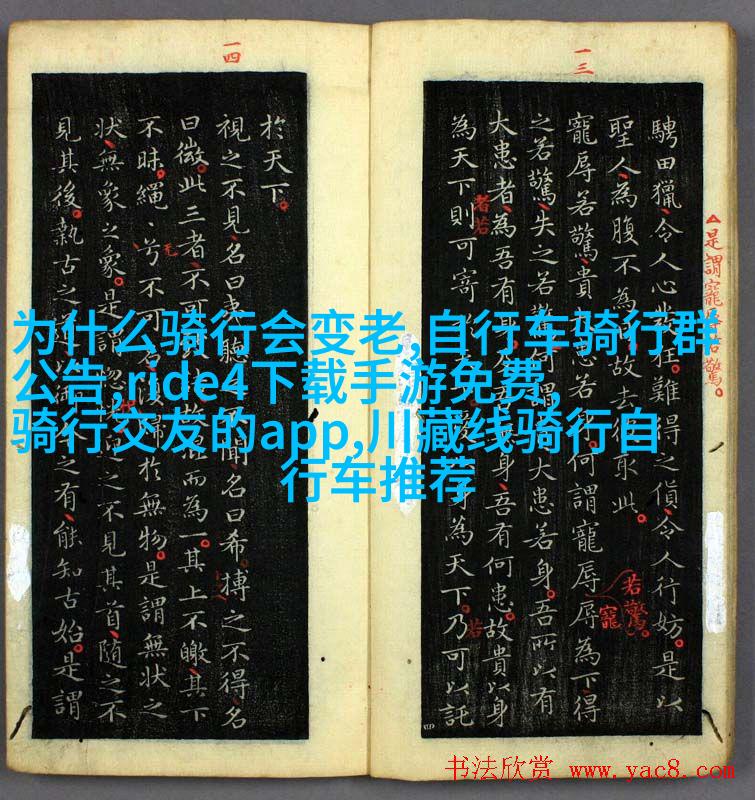 一三
一四
騁田獵令人心狂。難得之貨令人行妨。是以
聖人為腹不為故去彼取此。
寵辱若驚貴患若何謂寵辱辱為下得
之若驚失之若驚何謂大患若身。吾所以有
大患者為吾有身吾身吾有何患。故貴以身
為天下則可寄身為天下。乃可以託
於天下。
視之不見名曰夷聽聞名曰希搏之不得名
曰微。此三者不可故混而為一其上不皦其下
不昧。繩〻兮不可名復歸於無物。是謂無狀之
狀無象之象。是謂惚之不見其首隨之不
見其後。執古之道之有能知古始。是謂
△是謂寵辱若驚。
者若
若驚。
寵
若
为什么骑行会变老,自行车骑行群
公告,ride4下载手游免费,
骑行交友的app,川藏线骑行自
行车推荐
书法欣赏 www.yac8.com